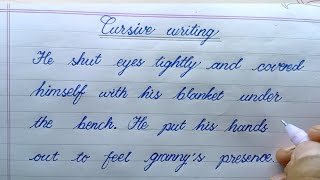 Cursive writing
He shut eyes tightly and covered
himself with his blanket under
the bench. He put his hands
out to feel granny's presence.